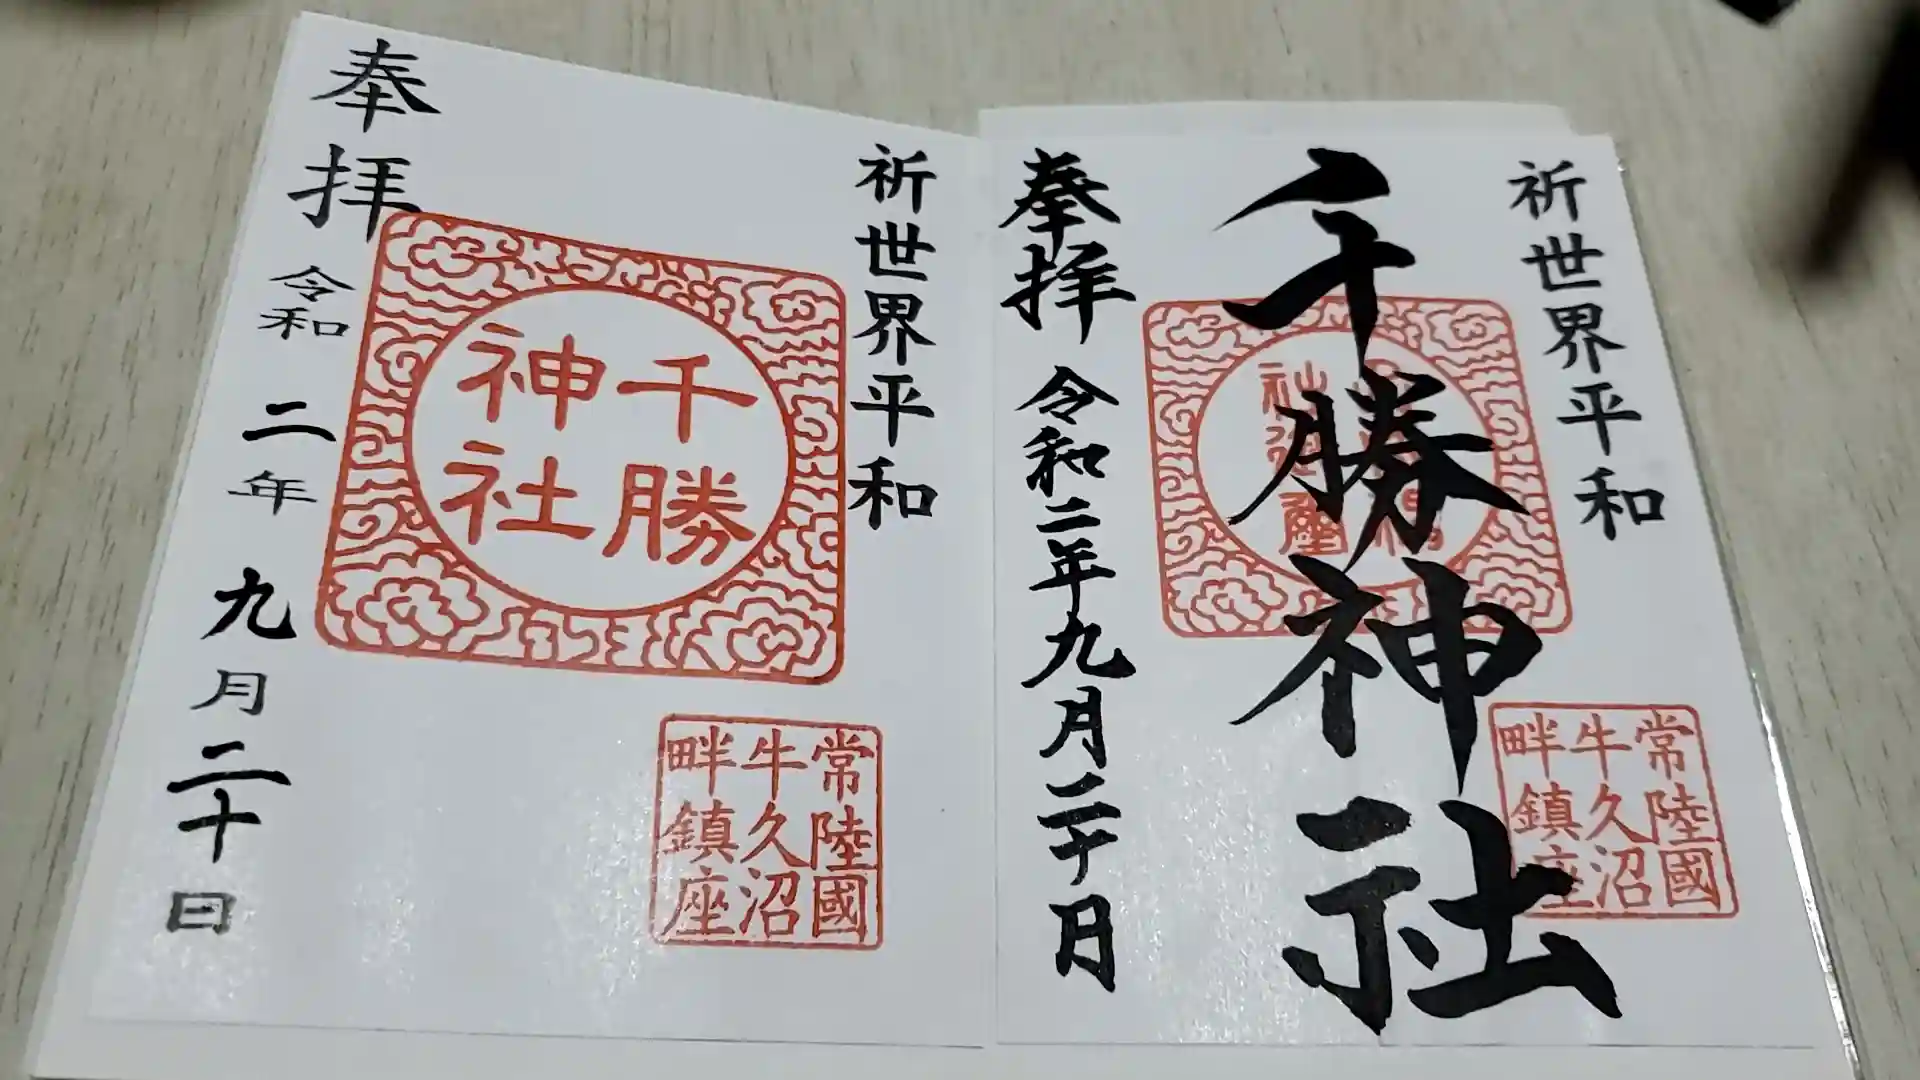 祈世界平和
千勝神社
奉拝
令和二年九月二十日
常陸國
牛久沼
畔鎮座
祈世界平和
千勝
神社
奉拝
令和二年九月二十日
常陸國
牛久沼
畔鎮座